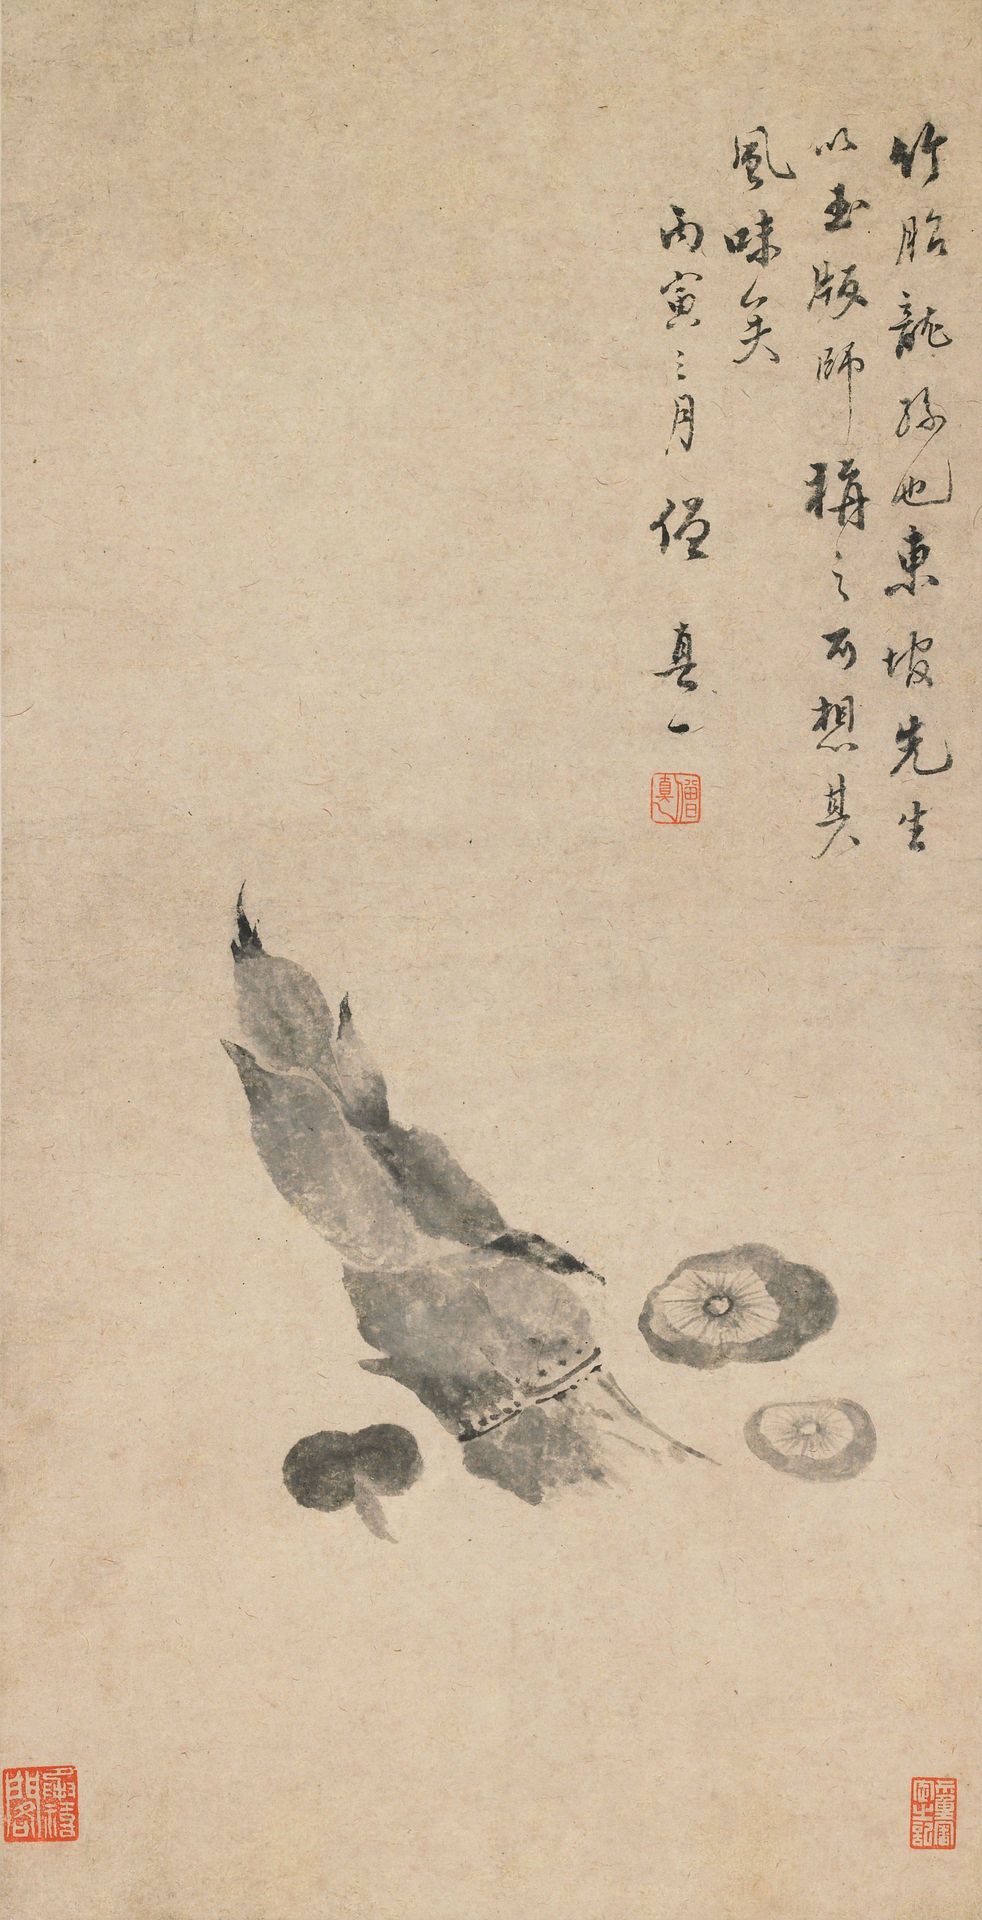 竹胎龍孫也東坡先生
以玉版師稱之可想其
風味矣
丙寅三月僧真一
僧真一